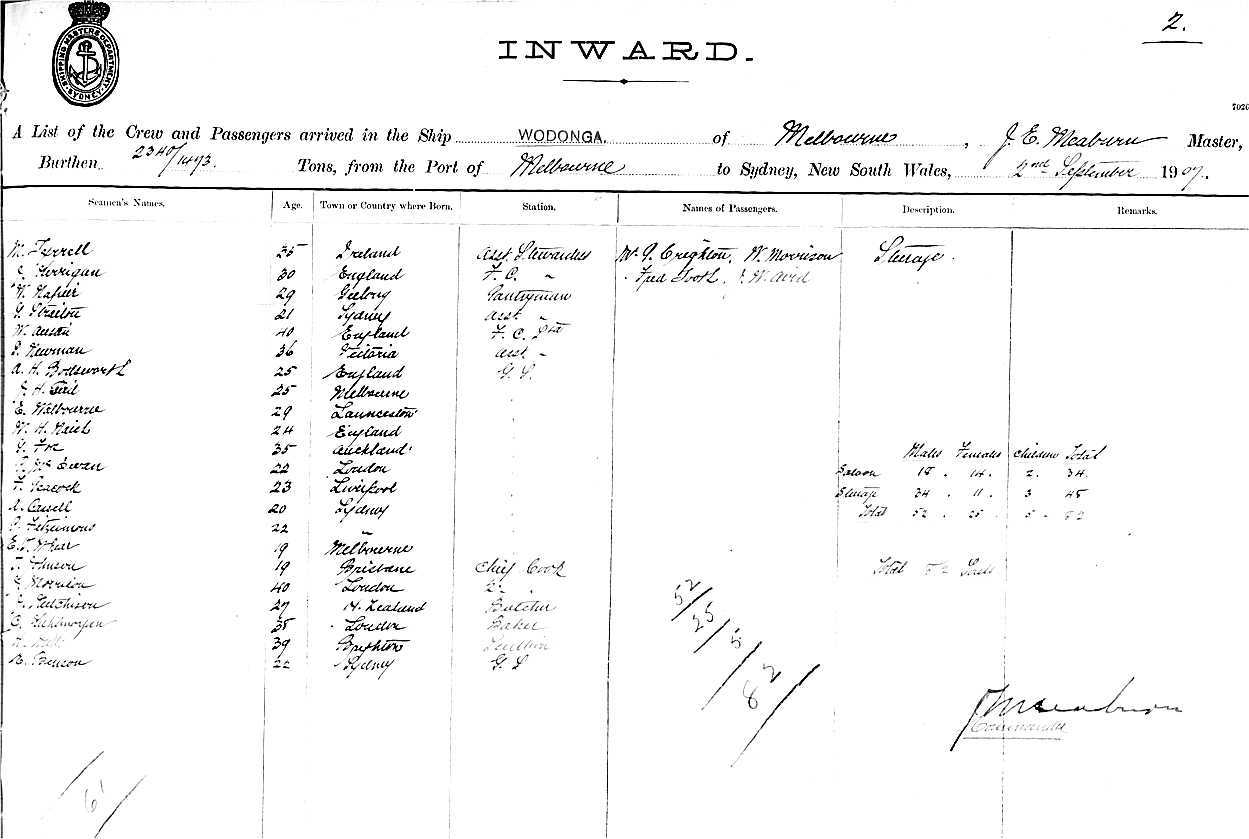 2.
SHIPPING MASTERS DEPARTMENT SYDNEY
INWARD.
7026
A List of the Crew and Passengers arrived in the Ship WODONGA. of Melbourne, J. E. Meaburn Master,
Burthen 2340/1473. Tons, from the Port of Melbourne to Sydney, New South Wales, 2nd September 1907.
Seamen's Names. Age. Town or Country where Born. Station. Names of Passengers. Description. Remarks.
35 Ireland Asst Stewardess Creighton, W. Morrison Steerage.
Horrigan 30 England F. C. " Fred Tooth,
W. Napier 29 Geelong Pantryman
G. 21 Sydney Asst "
W. Austin 40 England F. C.
Newman 36 Victoria Asst "
A. H. Bodsworth 25 England G. S.
25 Melbourne
E. Welbourne 29 Launceston
24 England
35 Auckland
Males Females Children Total
McEwan 22 London
Saloon 18. 14. 2. 34.
F. Peacock 23 Liverpool
Steerage 34. 11. 3 48
20 Sydney
Total 52. 25. 5. 82
Fitzsimons 22 "
19 Melbourne
19 Brisbane Chief Cook
Total
Morrison 40 London 2nd "
Hutchison 27 N. Zealand Butcher
38 London Baker
39 Brighton
Benson 22 Sydney G S
52/25/5/82
Meaburn
Commander
61